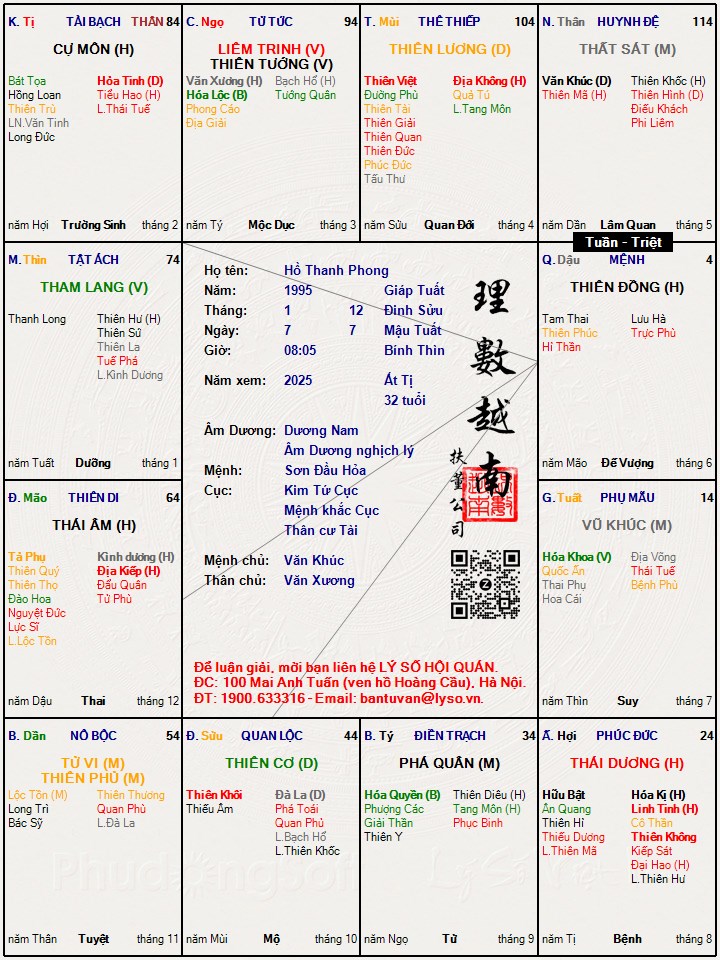 K. Tị TÀI BẠCH THÂN 84
CỰ MÔN (H)
Bát Tọa
Hồng Loan
Thiên Trù
LN.Văn Tinh
Long Đức
Hỏa Tinh (D)
Tiểu Hao (H)
L.Thái Tuế
năm Hợi Trường Sinh tháng 2
C. Ngọ TỬ TỨC 94
LIÊM TRINH (V)
THIÊN TƯỚNG (V)
Văn Xương (H)
Hóa Lộc (B)
Phong Cáo
Địa Giải
Bạch Hổ (H)
Tướng Quân
năm Tý Mộc Dục tháng 3
T. Mùi THÊ THIẾP 104
THIÊN LƯƠNG (D)
Thiên Việt
Đường Phù
Thiên Tài
Thiên Giải
Thiên Quan
Thiên Đức
Phúc Đức
Tấu Thư
Địa Không (H)
Quả Tú
L.Tang Môn
năm Sửu Quan Đới tháng 4
N. Thân HUYNH ĐỆ 114
THẤT SÁT (M)
Văn Khúc (D)
Thiên Mã (H)
Thiên Khốc (H)
Thiên Hình (D)
Điếu Khách
Phi Liêm
năm Dần Lâm Quan tháng 5
Tuần - Triệt
M. Thìn TẬT ÁCH 74
THAM LANG (V)
Thanh Long
Thiên Hư (H)
Thiên Sứ
Thiên La
Tuế Phá
L.Kình Dương
năm Tuất Dưỡng tháng 1
Họ tên: Hồ Thanh Phong
Năm: 1995 Giáp Tuất
Tháng: 1 12 Đinh Sửu
Ngày: 7 7 Mậu Tuất
Giờ: 08:05 Bính Thìn
Năm xem: 2025 Ất Tị
32 tuổi
Âm Dương: Dương Nam
Âm Dương nghịch lý
Mệnh: Sơn Đầu Hỏa
Cục: Kim Tứ Cục
Mệnh khắc Cục
Thân cư Tài
Mệnh chủ: Văn Khúc
Thân chủ: Văn Xương
理數越南
扶董公司
Để luận giải, mời bạn liên hệ LÝ SỐ HỘI QUÁN.
ĐC: 100 Mai Anh Tuấn (ven hồ Hoàng Cầu), Hà Nội.
ĐT: 1900.633316 - Email: bantuvan@lyso.vn.
Q. Dậu MỆNH 4
THIÊN ĐỒNG (H)
Tam Thai
Thiên Phúc
Hỉ Thần
Lưu Hà
Trực Phù
năm Mão Đế Vượng tháng 6
Đ. Mão THIÊN DI 64
THÁI ÂM (H)
Tả Phụ
Thiên Quý
Thiên Thọ
Đào Hoa
Nguyệt Đức
Lực Sĩ
L.Lộc Tồn
Kình dương (H)
Địa Kiếp (H)
Đẩu Quân
Tử Phù
năm Dậu Thai tháng 12
G. Tuất PHỤ MẪU 14
VŨ KHÚC (M)
Hóa Khoa (V)
Quốc Ấn
Thai Phụ
Hoa Cái
Địa Võng
Thái Tuế
Bệnh Phù
năm Thìn Suy tháng 7
B. Dần NÔ BỘC 54
TỬ VI (M)
THIÊN PHỦ (M)
Lộc Tồn (M)
Long Trì
Bác Sỹ
Thiên Thương
Quan Phù
L.Đà La
năm Thân Tuyệt tháng 11
Đ. Sửu QUAN LỘC 44
THIÊN CƠ (D)
Thiên Khôi
Thiếu Âm
Đà La (D)
Phá Toái
Quan Phủ
L.Bạch Hổ
L.Thiên Khốc
năm Mùi Mộ tháng 10
B. Tý ĐIỀN TRẠCH 34
PHÁ QUÂN (M)
Hóa Quyền (B)
Phượng Các
Giải Thần
Thiên Y
Thiên Diêu (H)
Tang Môn (H)
Phục Binh
năm Ngọ Tử tháng 9
Ấ. Hợi PHÚC ĐỨC 24
THÁI DƯƠNG (H)
Hữu Bật
Ân Quang
Thiên Hỉ
Thiếu Dương
L.Thiên Mã
Hóa Kị (H)
Linh Tinh (H)
Cô Thần
Thiên Không
Kiếp Sát
Đại Hao (H)
L.Thiên Hư
năm Tị Bệnh tháng 8